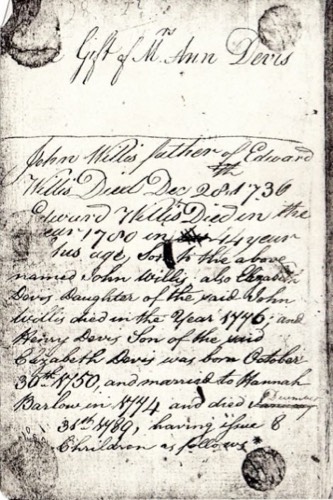 e Gift of Mrs Ann Devis
John Willis father of Edward
Willis Died Dec 28th 1736
Edward Willis Died in the
ear 1780 in 44 year
his age, Son to the above
named John Willis, also Elizabeth
Devis Daughter of the said John
Willis died in the Year 1776, and
Henry Devis Son of the said
Elizabeth Devis was born October
30th 1750, and married to Hannah
Barlow in 1774 and died December
31st 1789, having issue 8
Children as follows